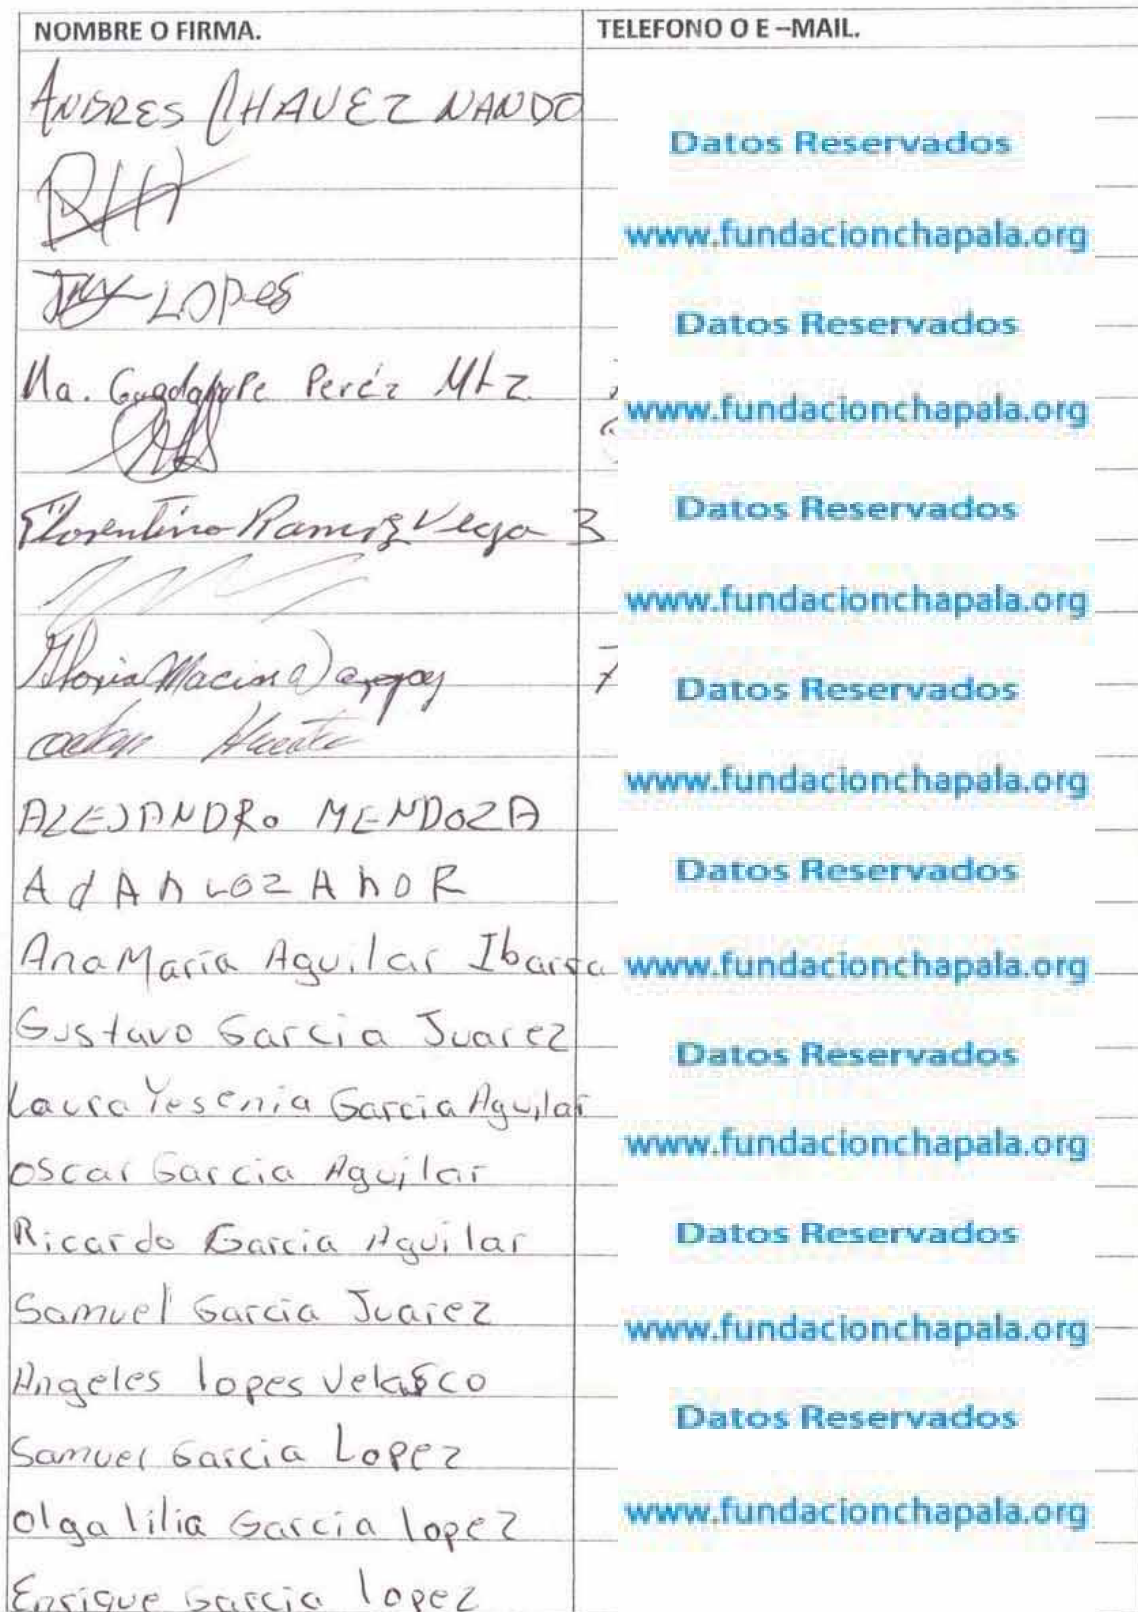 NOMBRE O FIRMA.
TELEFONO O E –MAIL.
ANDRES CHAVEZ NANDO
Datos Reservados
www.fundacionchapala.org
LOPES
Datos Reservados
Ma. Guadalupe Peréz Mtz
www.fundacionchapala.org
Florentino Ramirez Vega 3
Datos Reservados
www.fundacionchapala.org
Gloria Macias 7
Datos Reservados
www.fundacionchapala.org
ALEJANDRO MENDOZA
AdAn LOZAnO R
Datos Reservados
Ana Maria Aguilar Ibarra
www.fundacionchapala.org
Gustavo Garcia Juarez
Datos Reservados
Laura Yesenia Garcia Aguilar
www.fundacionchapala.org
Oscar Garcia Aguilar
Ricardo Garcia Aguilar
Datos Reservados
Samuel Garcia Juarez
www.fundacionchapala.org
Angeles lopes Velasco
Datos Reservados
Samuel Garcia Lopez
Olga lilia Garcia lopez
www.fundacionchapala.org
Enrique Garcia lopez